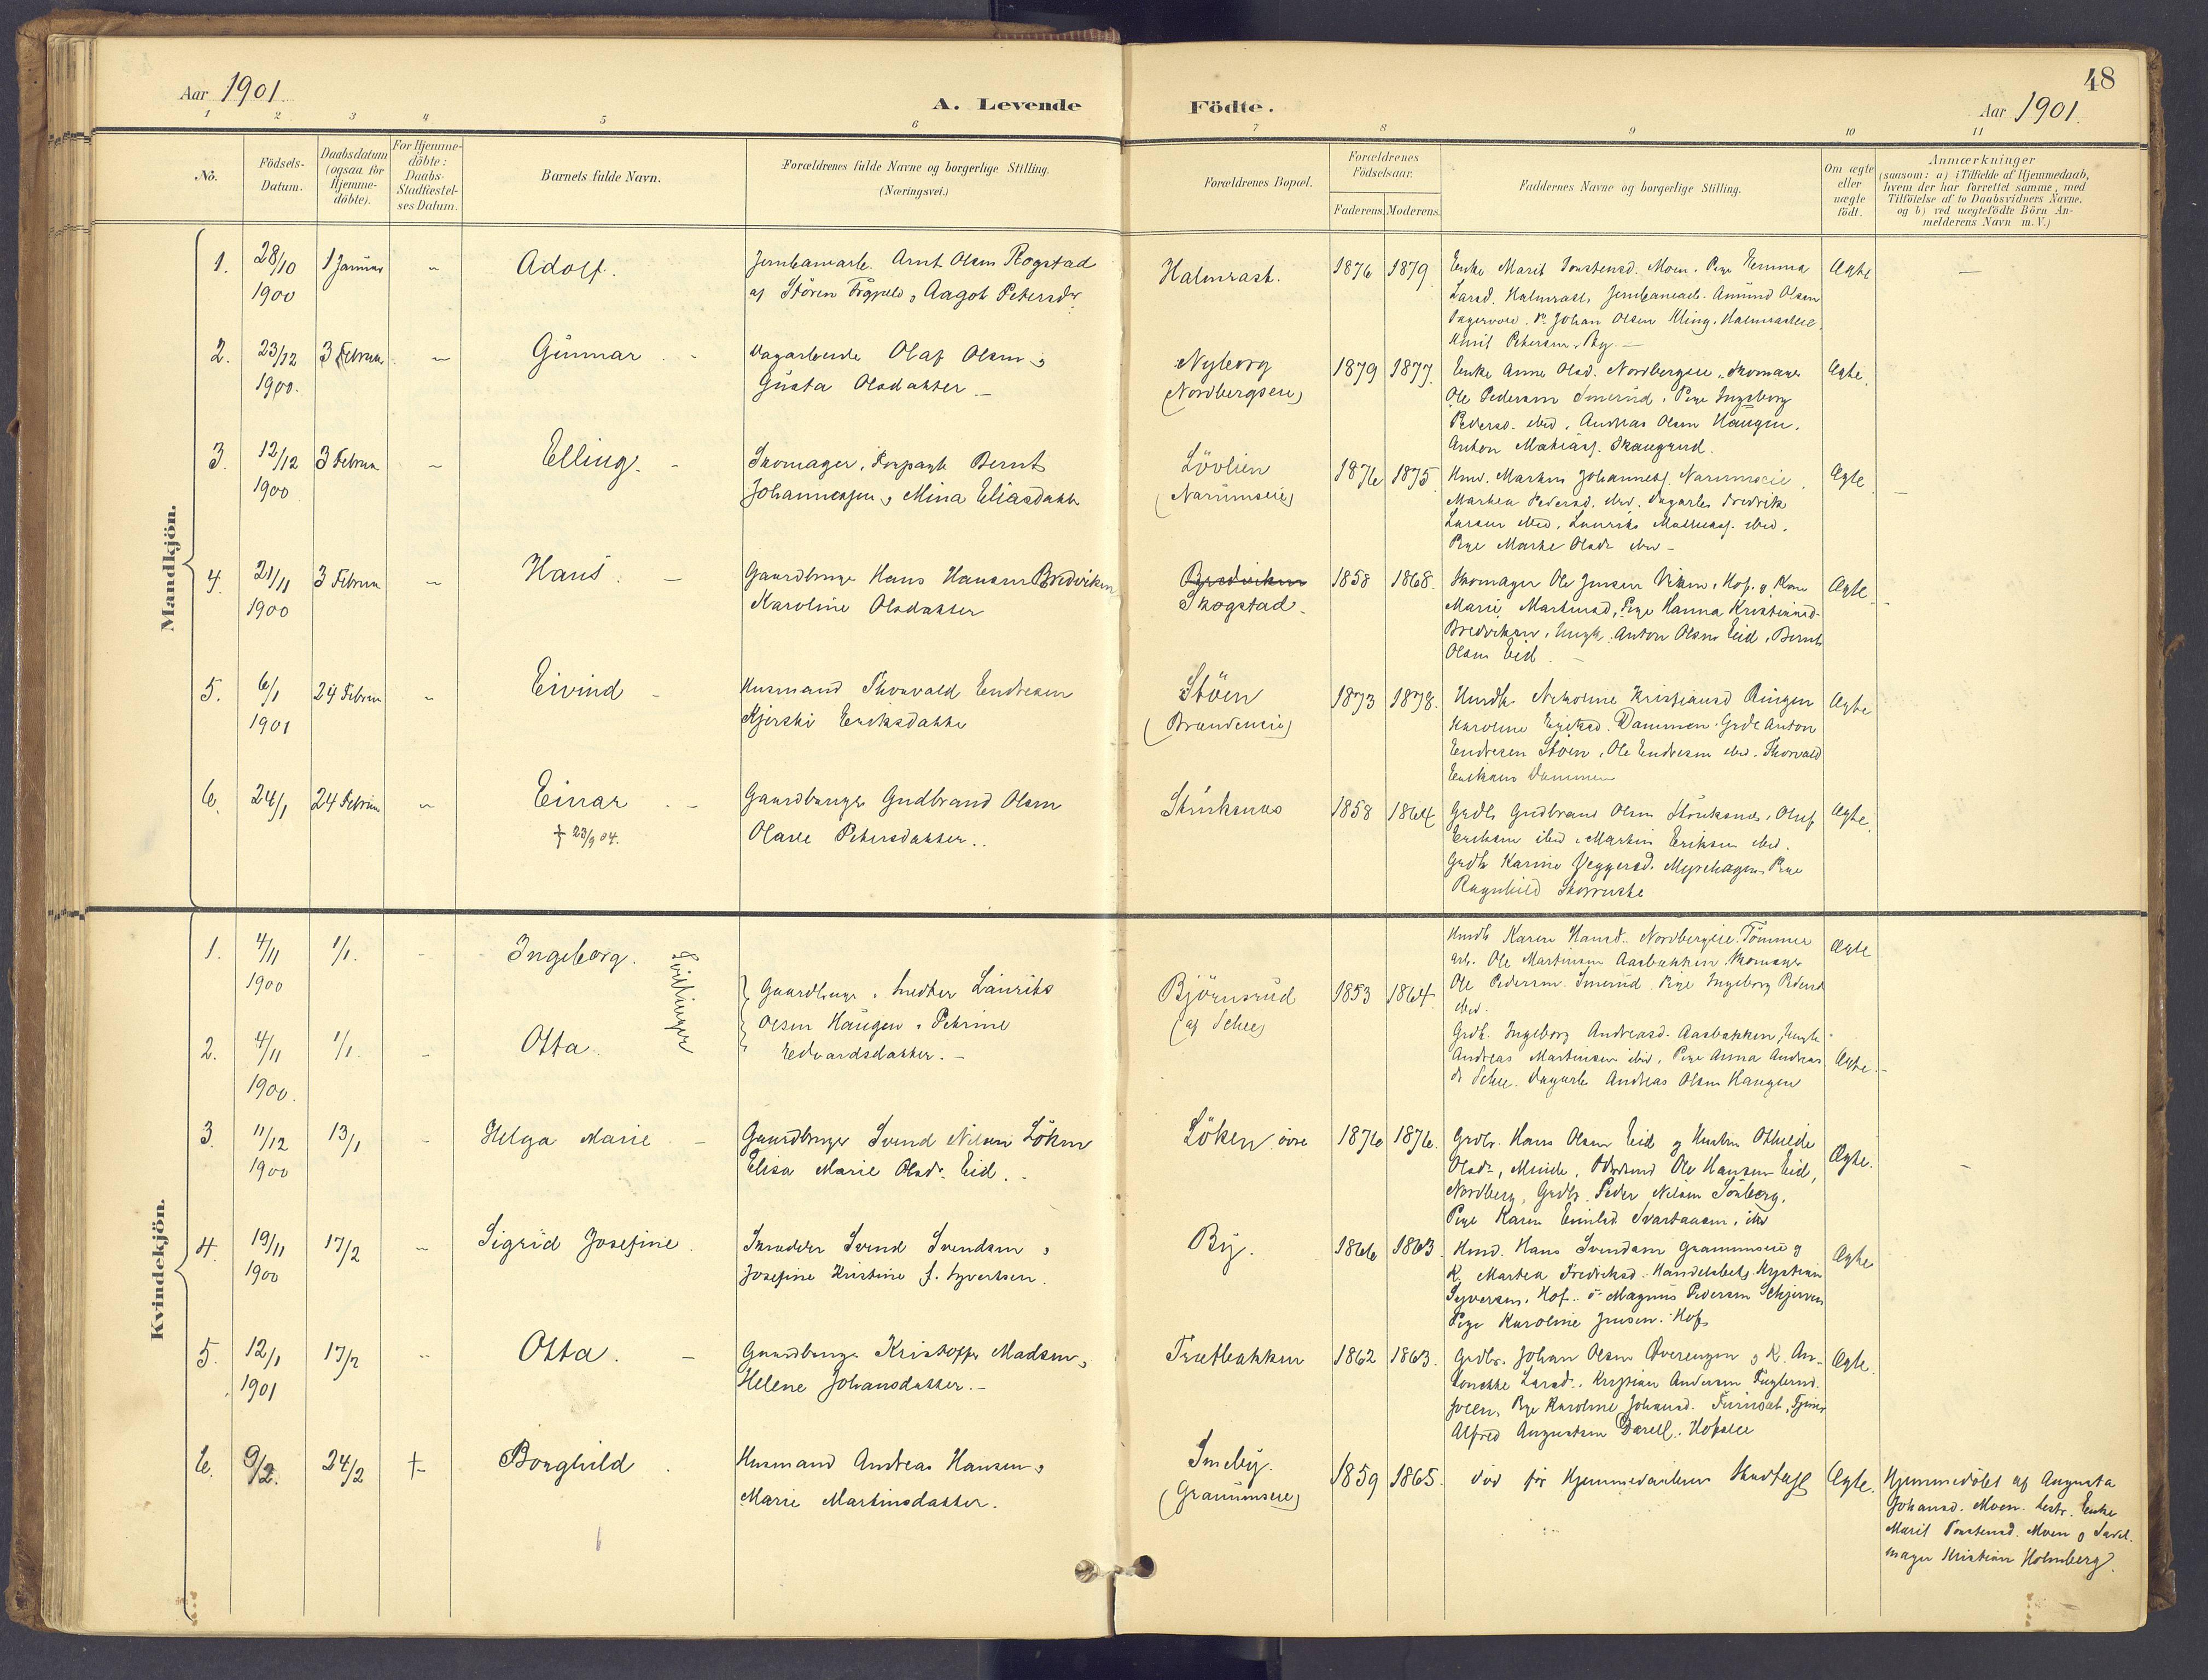 Aar 1901.
A. Levende
Födte.
48
Aar 1901.
1 2 3 4 5 6 7 8 9 10 11
No.
Födsels-
Datum.
Daabsdatum
(ogsaa for
Hjemme-
döbte).
For Hjemme-
döbte:
Daabs-
Stadfæstel-
ses Datum.
Barnets fulde Navn.
Forældrenes fulde Navne og borgerlige Stilling.
(Næringsvei.)
Forældrenes Bopæl.
Forældrenes
Födselsaar.
Faderens. Moderens.
Faddernes Navne og borgerlige Stilling.
Om ægte
eller
uægte
födt.
Anmærkninger
(saasom: a) i Tilfælde af Hjemmedaab,
hvem der har forrettet samme, med
Tilföielse af to Daabsvidners Navne.
og b) ved uægtefödte Börn An-
melderens Navn m. V.)
Mandkjön.
1.
28/10
1900
1 Januar
Adolf.
Arnt Olsen Rogstad
af Stören Aagot Petersdr
Halmrast.
1876 1879
Enke Marit Torstensd. Moen. Pige Emma
Larsd. Halmrast. Amund Olsen
Johan Olsen Kling. Halmrasteie
Knut Petersen. By. —
Ægte
2.
23/12
1900.
3 Februar
Gunnar
Dagarbeide Olaf Olsen
Gusta Olsdatter —
Nyborg
(Nordbergseie)
1879 1877.
Enke Anne Olsd. Nordbergseie. Skomager
Ole Pedersen Smerud. Pige Ingeborg
Pedersd. ibid. Andreas Olsen Haugen.
Anton Mathias. Skaugrud.
Ægte.
3.
12/12
1900
3 Februar
Elling.
Skomager. Bernt
Johannessen, Mina Eliasdatt
Lövlien
(Narumseie)
1876 1875.
Hmd. Martin Johannes. Narumseie.
Marthea Pedersd. ibid. Dagarb. Fredrik
Larsen ibid. Laurits ibid.
Pige Marthe Olsdr ibid —
Ægte
4.
21/11
1900
3 Februar
Hans.
Gaardbruger Hans Hansen Bredviken
Karoline Olsdatter
Bredviken
Skogstad.
1858 1868.
Skomager Ole Jensen Viken. Hof. og Kone
Marie Martinsd. Pige Hanna Kristiansd.
Bredviken. Ungk. Anton Olsen Eid. Bernt
Olsen Eid —
Ægte
5.
6/1
1901
24 Februar
Eivind
Husmand Thorvald Endresen
Kjersti Eriksdatter
Stöen
(Brandeneie)
1873 1878.
Kristiansd Ringen
Karoline Dammen. Grdb Anton
Endresen Stöen. Ole Endresen ibid. Thorvald
Eriksen Dammen
Ægte
6.
24/1
24 Februar
Einar
† 23/9 04.
Gaardbruger Gudbrand Olsen
Olave Petersdatter..
Struksnæs
1858 1864
Grdb. Gudbrand Olsen Struksnæs. Oluf
Eriksen ibid. Martin Eriksen ibid.
Grdb Karine Myrehagen. Pige
Ragnhild
Ægte.
Kvindekjön.
1.
4/11
1900
1/1.
Ingeborg.
Tvillinger
Gaardbruger, Snedker Lauriks
Olsen Haugen, Petrine
Edvardsdatter. —
Björnsrud
(af Schee)
1853 1864.
Karen Hansd. Nordbergseie. Tömmer
arb. Ole Martinsen Aasbakken. Skomager
Ole Pedersen Smerud. Pige Ingeborg Pedersd
ibid.
Ægte
2.
4/11
1900.
1/1.
Otta
Grdb. Ingeborg Andreasd. Aasbakken, Ungk
Andreas Martinsen ibid. Pige Anna Andreas
dr Schee. Dagarb Andreas Olsen Haugen
Ægte.
3.
11/12
1900
13/1
Helga Marie
Gaardbruger Svend Nilsen Löken
Elisa Marie Olsdr. Eid.
Löken övre
1876 1876.
Grdbr. Hans Olsen Eid og Hustru Othilde
Olsdr, Minde. Ole Hansen Eid,
Nordberg. Grdb. Peder Nilsen Sönberg.
Pige Karen Svartaasen. ibd
Ægte.
4.
19/11
1900
17/2
Sigrid Josefine.
Skrædder Svend Svendsen
Josefine Kristine f. Syvertsen.
By.
1866 1863
Hmd. Hans Svendsen Granumseie og
K. Martea Fredriksd. Handelsbetj. Kristian
Syversen. Hof. Magnus Pedersen Schjerven
Pige Karoline Jensen. Hof.
Ægte
5.
12/1
1901
17/2
Otta.
Gaardbruger Kristoffer Madsen
Helene Johansdatter. —
Tuetbakken
1862 1863.
Grdbr. Johan Olsen Överengen og K. An-
Larsd. Kristian Andersen Fuglerud.
Pige Karoline Johansd. Tjener
Alfred Augustsen Hofseie
Ægte.
6.
9/2.
24/2
†
Borghild
Husmand Andreas Hansen,
Marie Martinsdatter.
Smeby.
(Granumseie)
1859 1865.
död för Hjemmedaabens Stadfæst
Ægte.
Hjemmedöbt af Augusta
Johansd. Moen. Enke
Marit Torstensd. Moen og Sadel-
mager Kristian Holmberg.